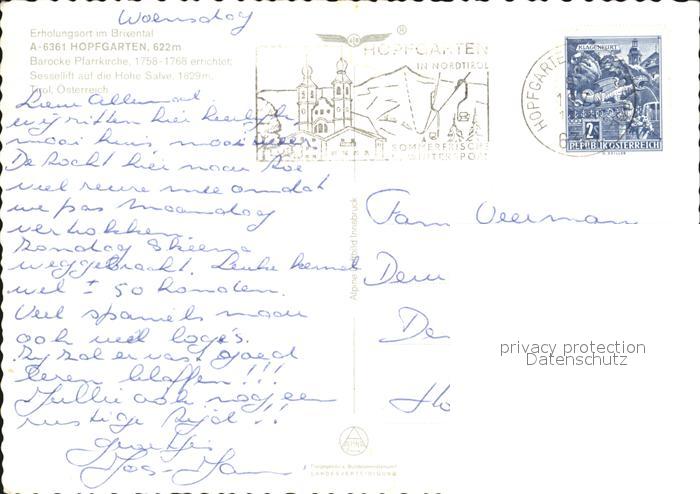 Woensdag
Erholungsort im Brixental
A-6361 HOPFGARTEN, 622m
Barocke Pfarrkirche, 1758-1768 errichtet;
Sessellift auf die Hohe Salve, 1829m,
Tirol, Österreich
HOPFGARTEN
IN NORDTIROL
SOMMERFRISCHE
WINTERSPORT
HOPFGARTEN
KLAGENFURT
2S
REPUBLIK ÖSTERREICH
Lieve Allemaal
wij zitten hier heerlijk
mooi huis, mooi weer.
De tocht hier naar toe
viel reuze mee omdat
we pas Maandag
vertrokken.
Zondag Skeena
weggebracht. Leuke kennel
wel ± 50 honden.
Veel spaniels maar
ook veel logé's.
Zij zal er vast goed
leren blaffen!!!
Jullie ook nog een
rustige tijd!!
groetjes
Fam Veerman
Dem
De
Ho
Alpine Luftbild Innsbruck
privacy protection
Datenschutz
LANDESVERTEIDIGUNG